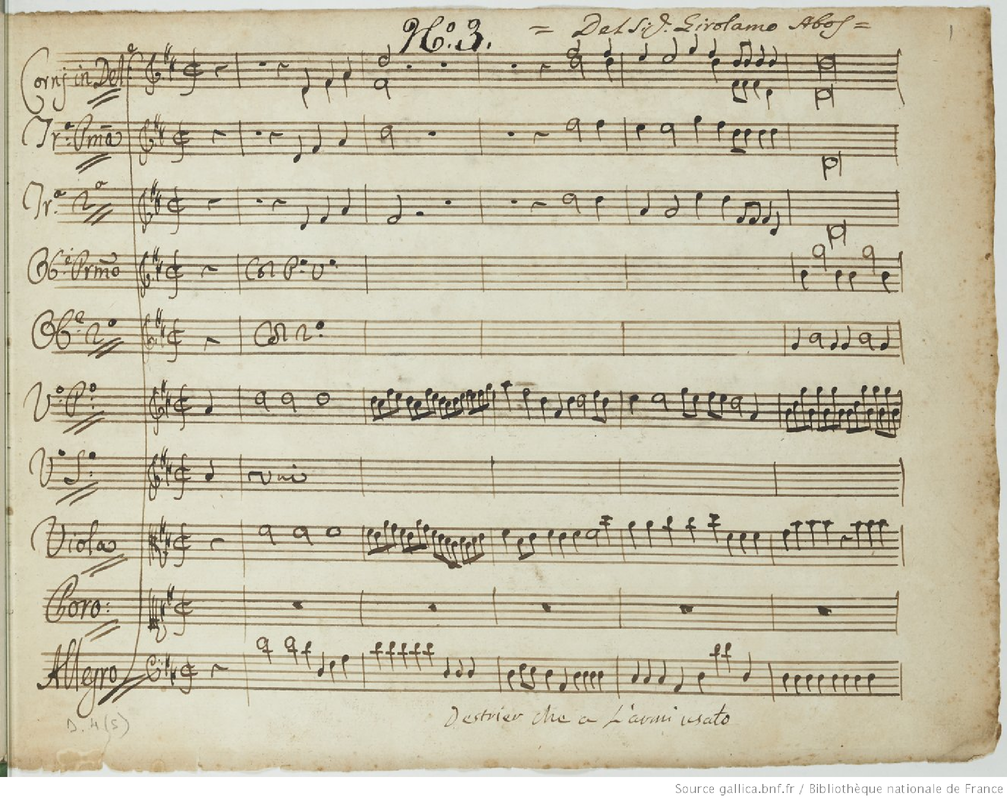 No. 3. = Del Sig.r Girolamo Abos = 1
Corni in Del.
Tr.a Pma
Tr.a 2a
Ob.e Prmo Col P.o V.o
Ob.e 2.o Col 2.o
V.o P.o
V.o S.o Uni
Viola
Coro:
Allegro
Destrier che a l'armi usato
D. 4 (5)
Source gallica.bnf.fr / Bibliothèque nationale de France